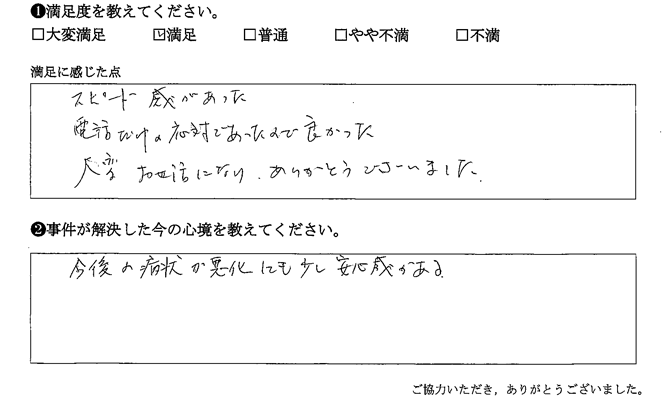 ❶満足度を教えてください。
□大変満足 ☑満足 □普通 □やや不満 □不満
満足に感じた点
スピード感があった
電話だけの応対であったので良かった
大変お世話になり、ありがとうございました。
❷事件が解決した今の心境を教えてください。
今後の病状が悪化にも少し安心感がある
ご協力いただき，ありがとうございました。